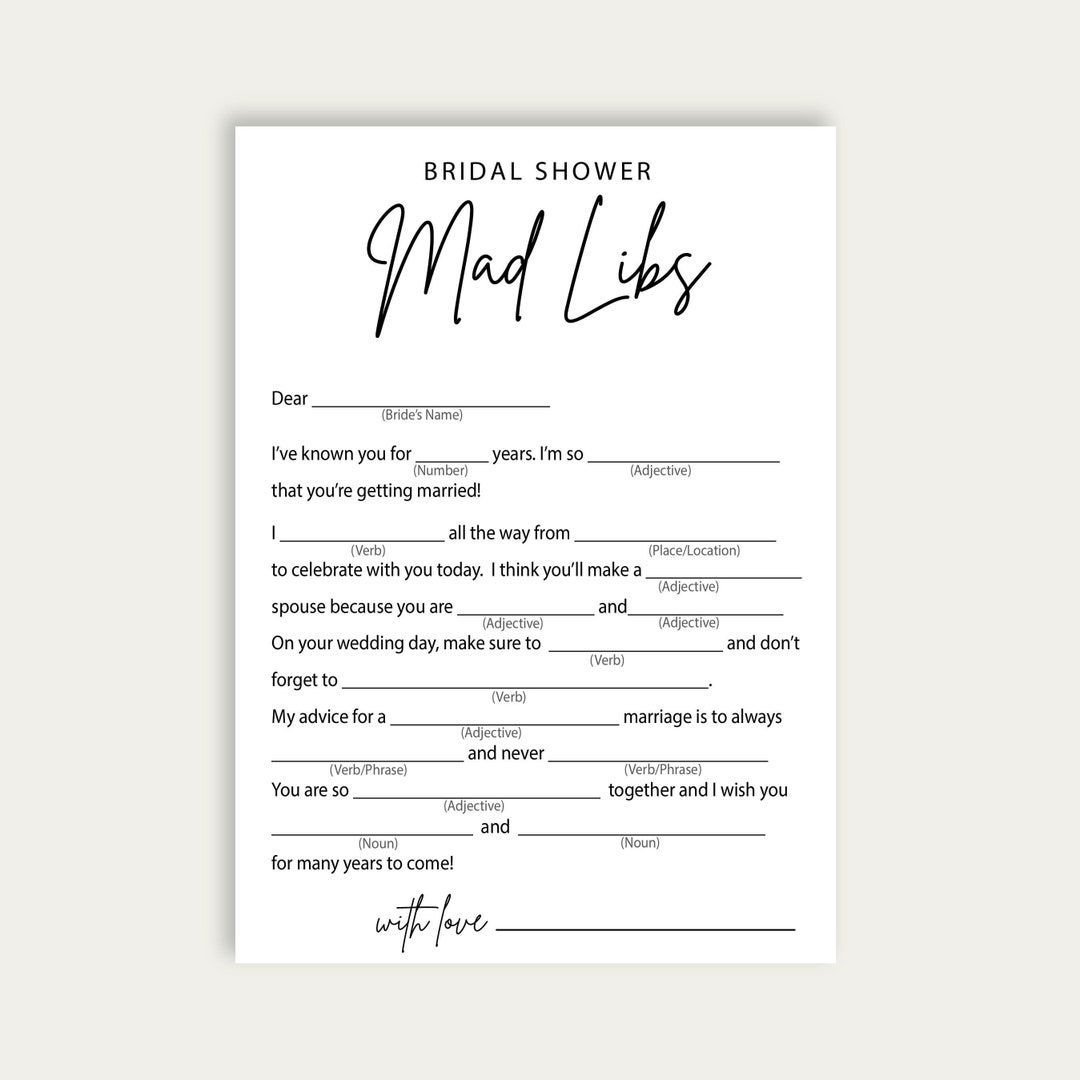 BRIDAL SHOWER
Mad Libs
Dear ____________
(Bride's Name)
I've known you for ______ years. I'm so ____________
(Number) (Adjective)
that you're getting married!
I ____________ all the way from ____________
(Verb) (Place/Location)
to celebrate with you today. I think you'll make a ____________
(Adjective)
spouse because you are ____________ and____________
(Adjective) (Adjective)
On your wedding day, make sure to ____________ and don't
(Verb)
forget to ____________.
(Verb)
My advice for a ____________ marriage is to always
(Adjective)
____________ and never ____________
(Verb/Phrase) (Verb/Phrase)
You are so ____________ together and I wish you
(Adjective)
____________ and ____________
(Noun) (Noun)
for many years to come!
with love ____________